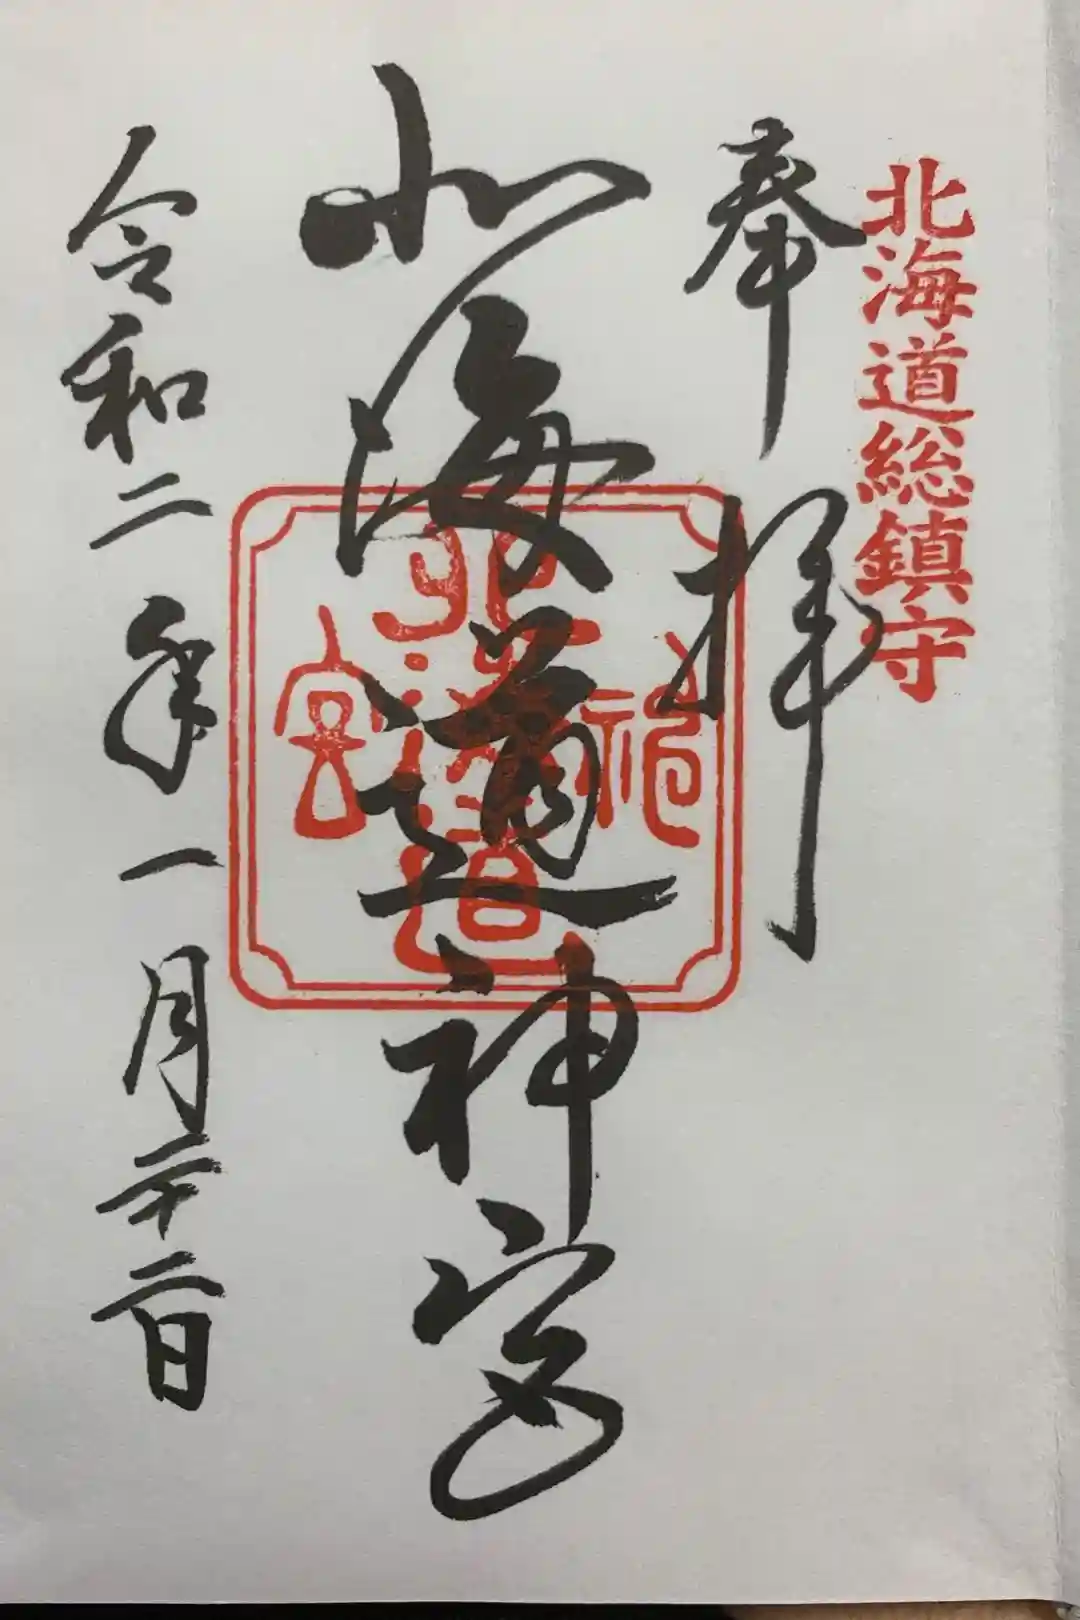 北海道総鎮守
奉拝
北海道神宮
北海道神宮
令和二年一月二十二日